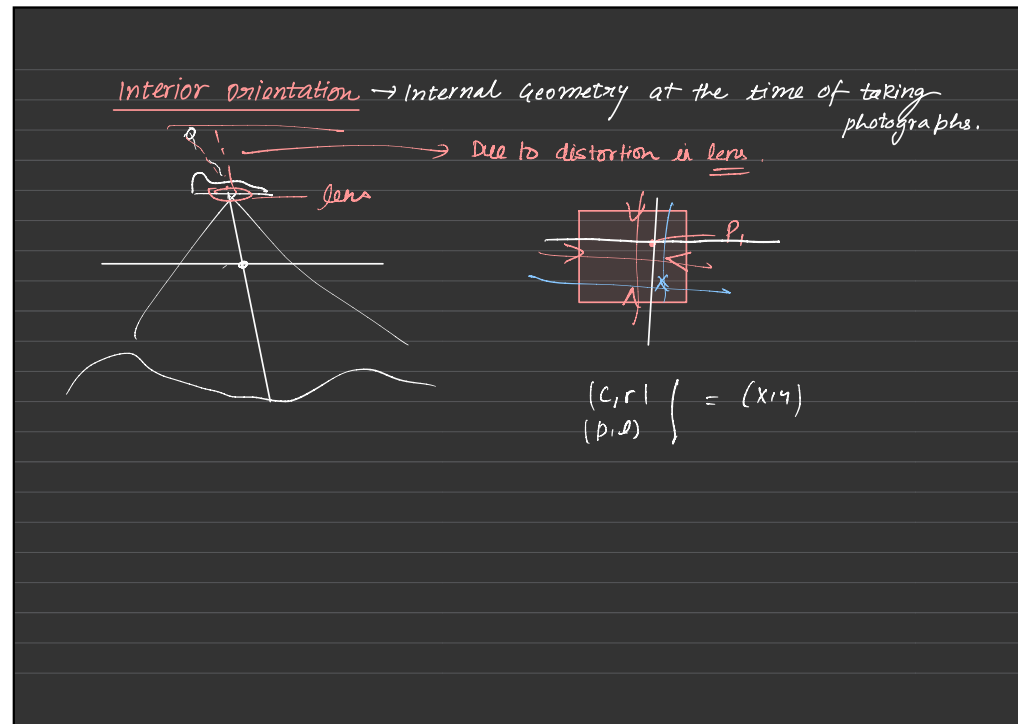 Interior Orientation → Internal Geometry at the time of taking
photographs.
Due to distortion in lens.
lens
P1
(c,r) = (x,y)
(p,l)